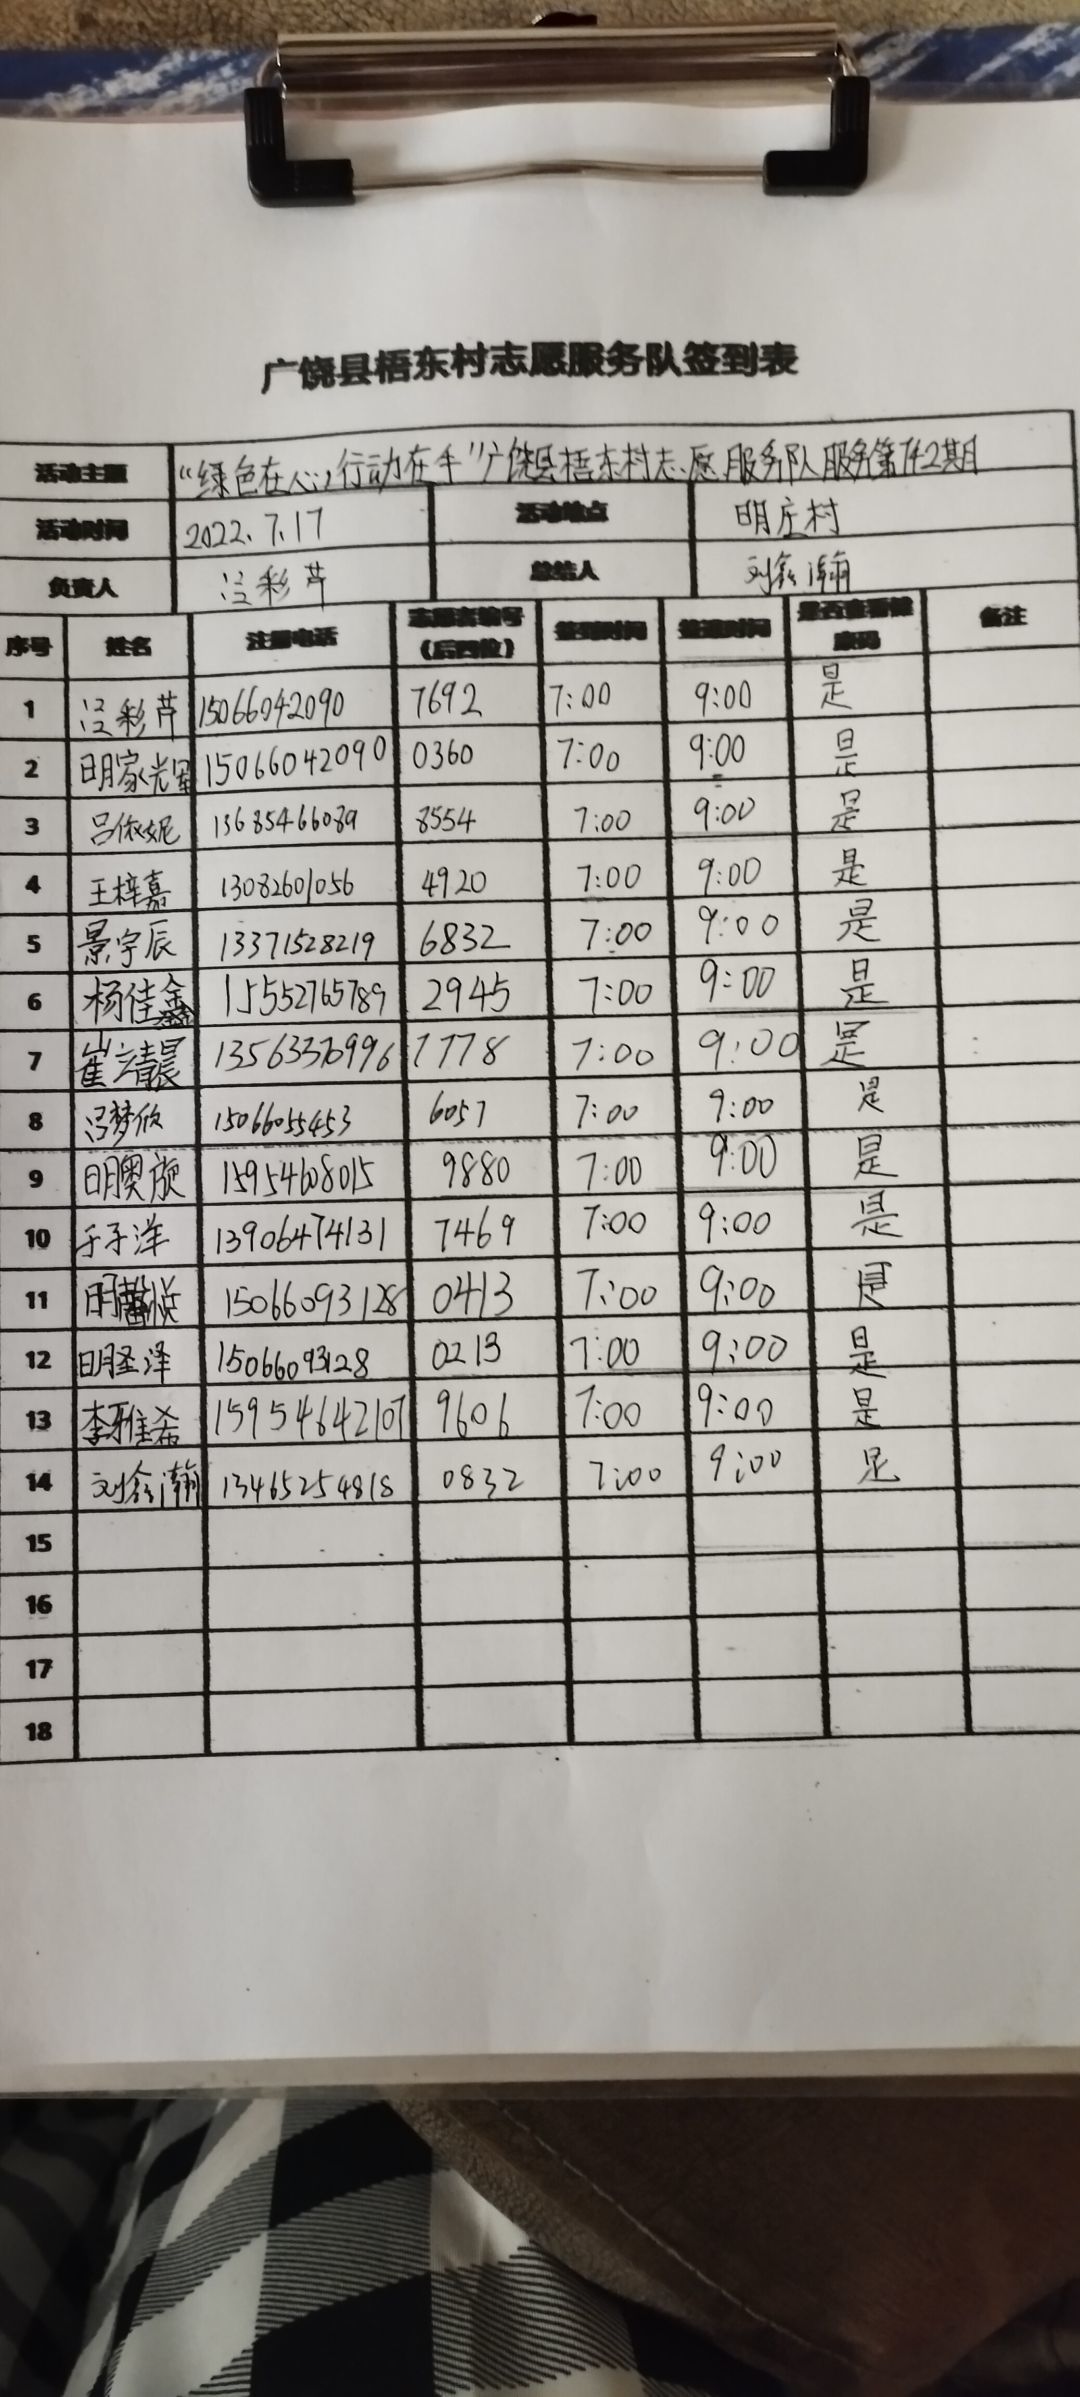 广饶县梧东村志愿服务队签到表
活动主题 “绿色在心,行动在手”广饶县梧东村志愿服务队服务第142期
活动时间 2022.7.17 活动地点 明庄村
负责人 彩芹 总结人 刘鑫瀚
序号 姓名 注册电话 志愿者编号(后四位) 签到时间 签退时间 是否查看健康码 备注
1 彩芹 15066042090 7692 7:00 9:00 是
2 明家光 15066042090 0360 7:00 9:00 是
3 吕依妮 13685466089 8554 7:00 9:00 是
4 王梓嘉 13082601056 4920 7:00 9:00 是
5 景宇辰 13371528219 6832 7:00 9:00 是
6 杨佳鑫 15552765789 2945 7:00 9:00 是
7 崔 晨 13563370996 7778 7:00 9:00 是
8 冯梦欣 15066055453 6057 7:00 9:00 是
9 明奥旋 15954608015 9880 7:00 9:00 是
10 于子洋 13906474131 7469 7:00 9:00 是
11 明馨悦 15066093128 0413 7:00 9:00 是
12 明圣泽 15066093128 0213 7:00 9:00 是
13 李雅希 15954642107 9606 7:00 9:00 是
14 刘鑫瀚 13465254818 0832 7:00 9:00 是
15
16
17
18